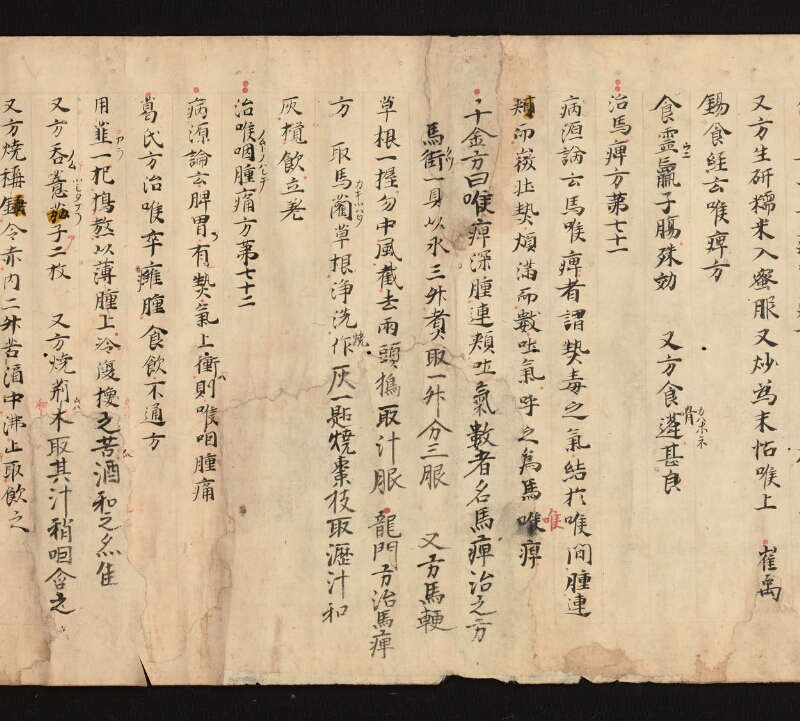 又方生研糯米入蜜服又炒為末怗喉上　崔禹
錫食経云喉痺方
食霊蠃子腸殊効　又方食蓬甚良
治馬痺方第七十一
病源論云馬喉痺者謂𤍠毒之氣結於喉間腫連
頬而微壮𤍠煩満而數吐氣呼之為馬喉痺
千金方曰喉痺深腫連頬吐氣數者名馬痺治之方
馬銜一具以水三升煮取一升分三服　又方馬鞕
草根一握勿中風截去兩頭搗取汁服　龍門方治馬痺
方　取馬藺草根浄洗焼作灰一匙焼棗枝取瀝汁和
灰攪飲立差
治喉咽腫痛方第七十二
病源論云脾胃有𤍠氣上衝則喉咽腫痛
葛氏方治喉卒癰腫食飲不通方
用韮一把搗熬以薄腫上冷復換之苦酒和之亦佳
又方呑薏苡子二枚　又方焼荊木取其汁稍咽含之
又方焼秤錘令赤内二升苦酒中沸止取飲之